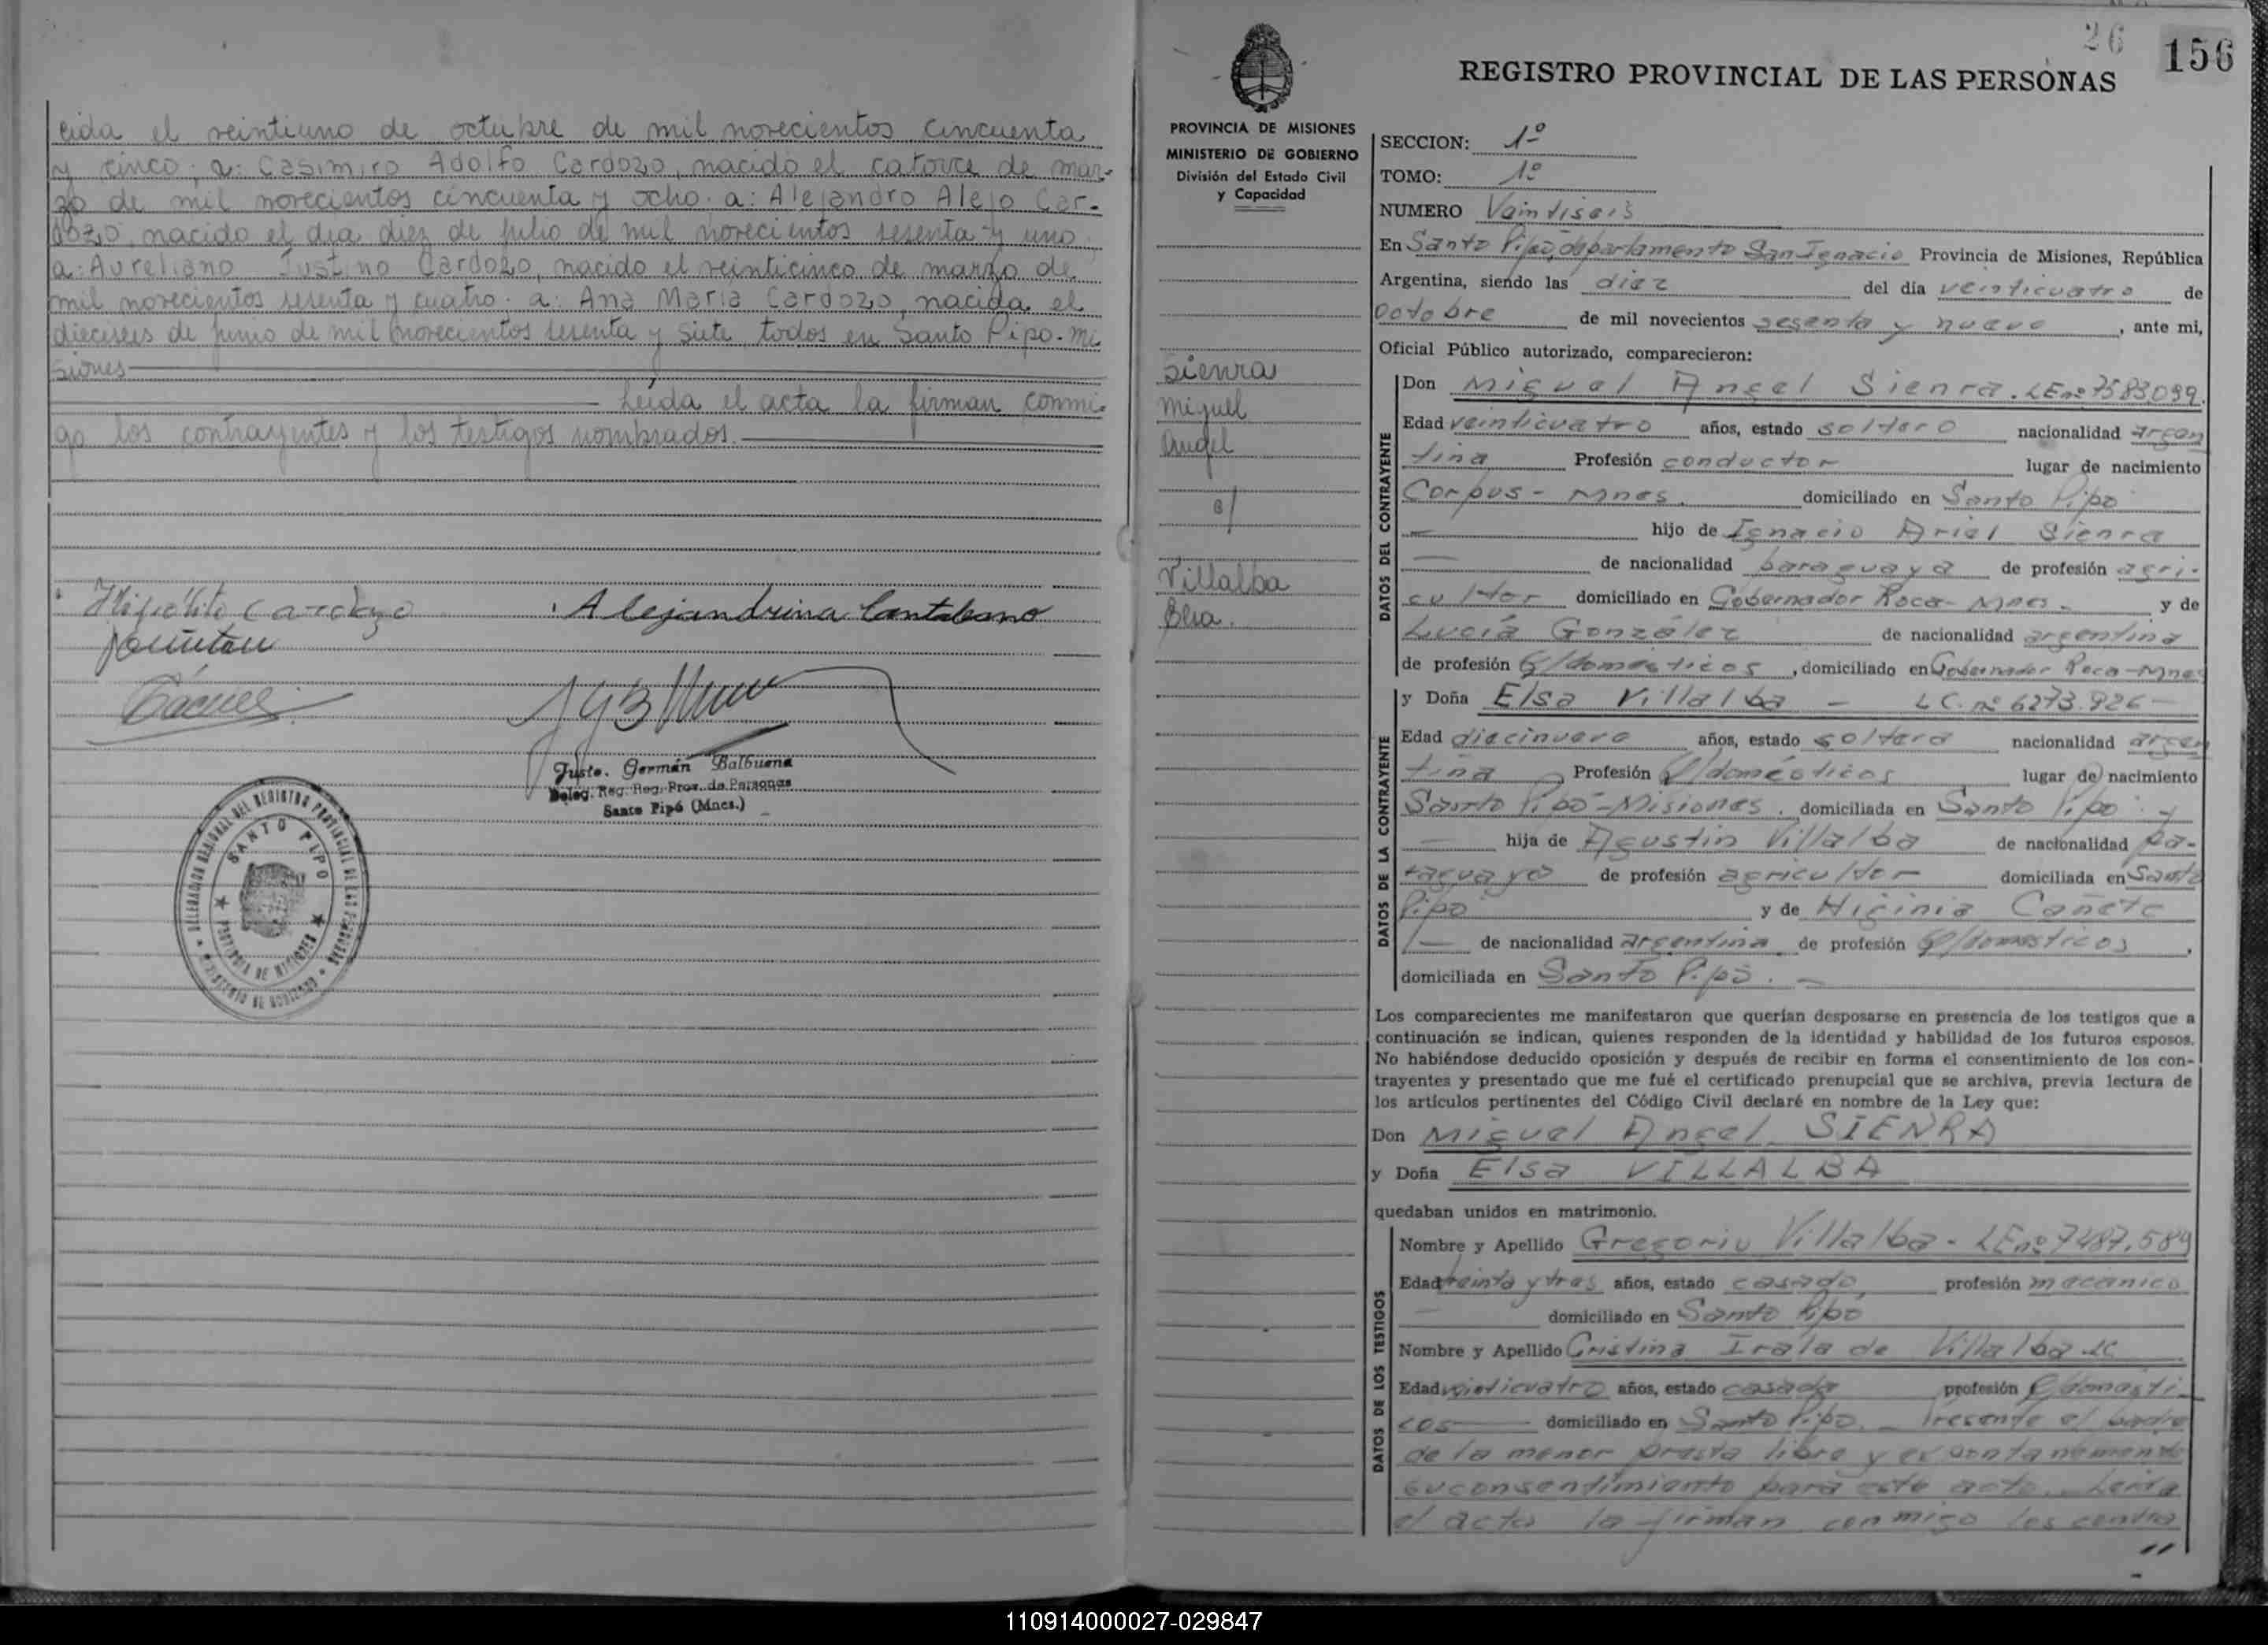 cida el veintiuno de octubre de mil novecientos cincuenta
y cinco; a: Casimiro Adolfo Cardozo, nacido el catorce de mar-
zo de mil novecientos cincuenta y ocho. a: Alejandro Alejo Car-
dozo, nacido el dia diez de julio de mil novecientos sesenta y uno.
a: Aureliano Justino Cardozo, nacido el veinticinco de marzo de
mil novecientos sesenta y cuatro. a: Ana Maria Cardozo, nacida el
dieciseis de junio de mil novecientos sesenta y siete, todos en Santo Pipo. Mi
siones
Leída el acta la firman conmi-
go los contrayentes y los testigos nombrados.
Hipólito Cardozo
Alejandrina Cantalano
Justo. Germán Balbuena
Deleg. Reg. Reg. Prov. de Personas
Santo Pipó (Mnes.)
DELEGACION REGIONAL DEL REGISTRO PROVINCIAL DE LAS PERSONAS
MINISTERIO DE GOBIERNO
SANTO PIPO
PROVINCIA DE MISIONES
26
156
REGISTRO PROVINCIAL DE LAS PERSONAS
PROVINCIA DE MISIONES
MINISTERIO DE GOBIERNO
División del Estado Civil
y Capacidad
Sienra
Miguel
Angel
c/
Villalba
Elsa.
SECCION: 1º
TOMO: 1º
NUMERO Veintiseis
En Santo Pipo, departamento San Ignacio Provincia de Misiones, República
Argentina, siendo las diez del día veinticuatro de
octobre de mil novecientos sesenta y nueve, ante mi,
Oficial Público autorizado, comparecieron:
DATOS DEL CONTRAYENTE
Don Miguel Angel Sienra. LE nº 7583.099.
Edad veinticuatro años, estado soltero nacionalidad argen
tina Profesión conductor lugar de nacimiento
Corpus - Mnes. domiciliado en Santo Pipo
— hijo de Ignacio Ariel Sienra
— de nacionalidad paraguaya de profesión agri-
cultor domiciliado en Gobernador Roca - Mnes. y de
Lucía González de nacionalidad argentina
de profesión Q/domésticos, domiciliado en Gobernador Roca - Mnes
DATOS DE LA CONTRAYENTE
y Doña Elsa Villalba - LC. nº 6273.926 -
Edad diecinueve años, estado soltera nacionalidad argen
tina, Profesión Q/domésticos lugar de nacimiento
Santo Pipó - Misiones. domiciliada en Santo Pipo -
— hija de Agustin Villalba de nacionalidad pa-
raguaya de profesión agricultor domiciliada en Santo
Pipo y de Higinia Cañete
— de nacionalidad argentina de profesión Q/domésticos,
domiciliada en Santo Pipo. -
Los comparecientes me manifestaron que querían desposarse en presencia de los testigos que a
continuación se indican, quienes responden de la identidad y habilidad de los futuros esposos.
No habiéndose deducido oposición y después de recibir en forma el consentimiento de los con-
trayentes y presentado que me fué el certificado prenupcial que se archiva, previa lectura de
los artículos pertinentes del Código Civil declaré en nombre de la Ley que:
Don Miguel Angel SIENRA
y Doña Elsa VILLALBA
quedaban unidos en matrimonio.
DATOS DE LOS TESTIGOS
Nombre y Apellido Gregorio Villalba - LE nº 7487.589
Edad treinta y tres años, estado casado, profesión mecánico
— domiciliado en Santo Pipó
Nombre y Apellido Cristina Irala de Villalba LC
Edad veinticuatro años, estado casada profesión Q/domesti
cos — domiciliado en Santo Pipo. - Presente el padre
de la menor presta libre y expontaneamente
su consentimiento para este acto. Leida
el acta la firman conmigo los contra
110914000027-029847